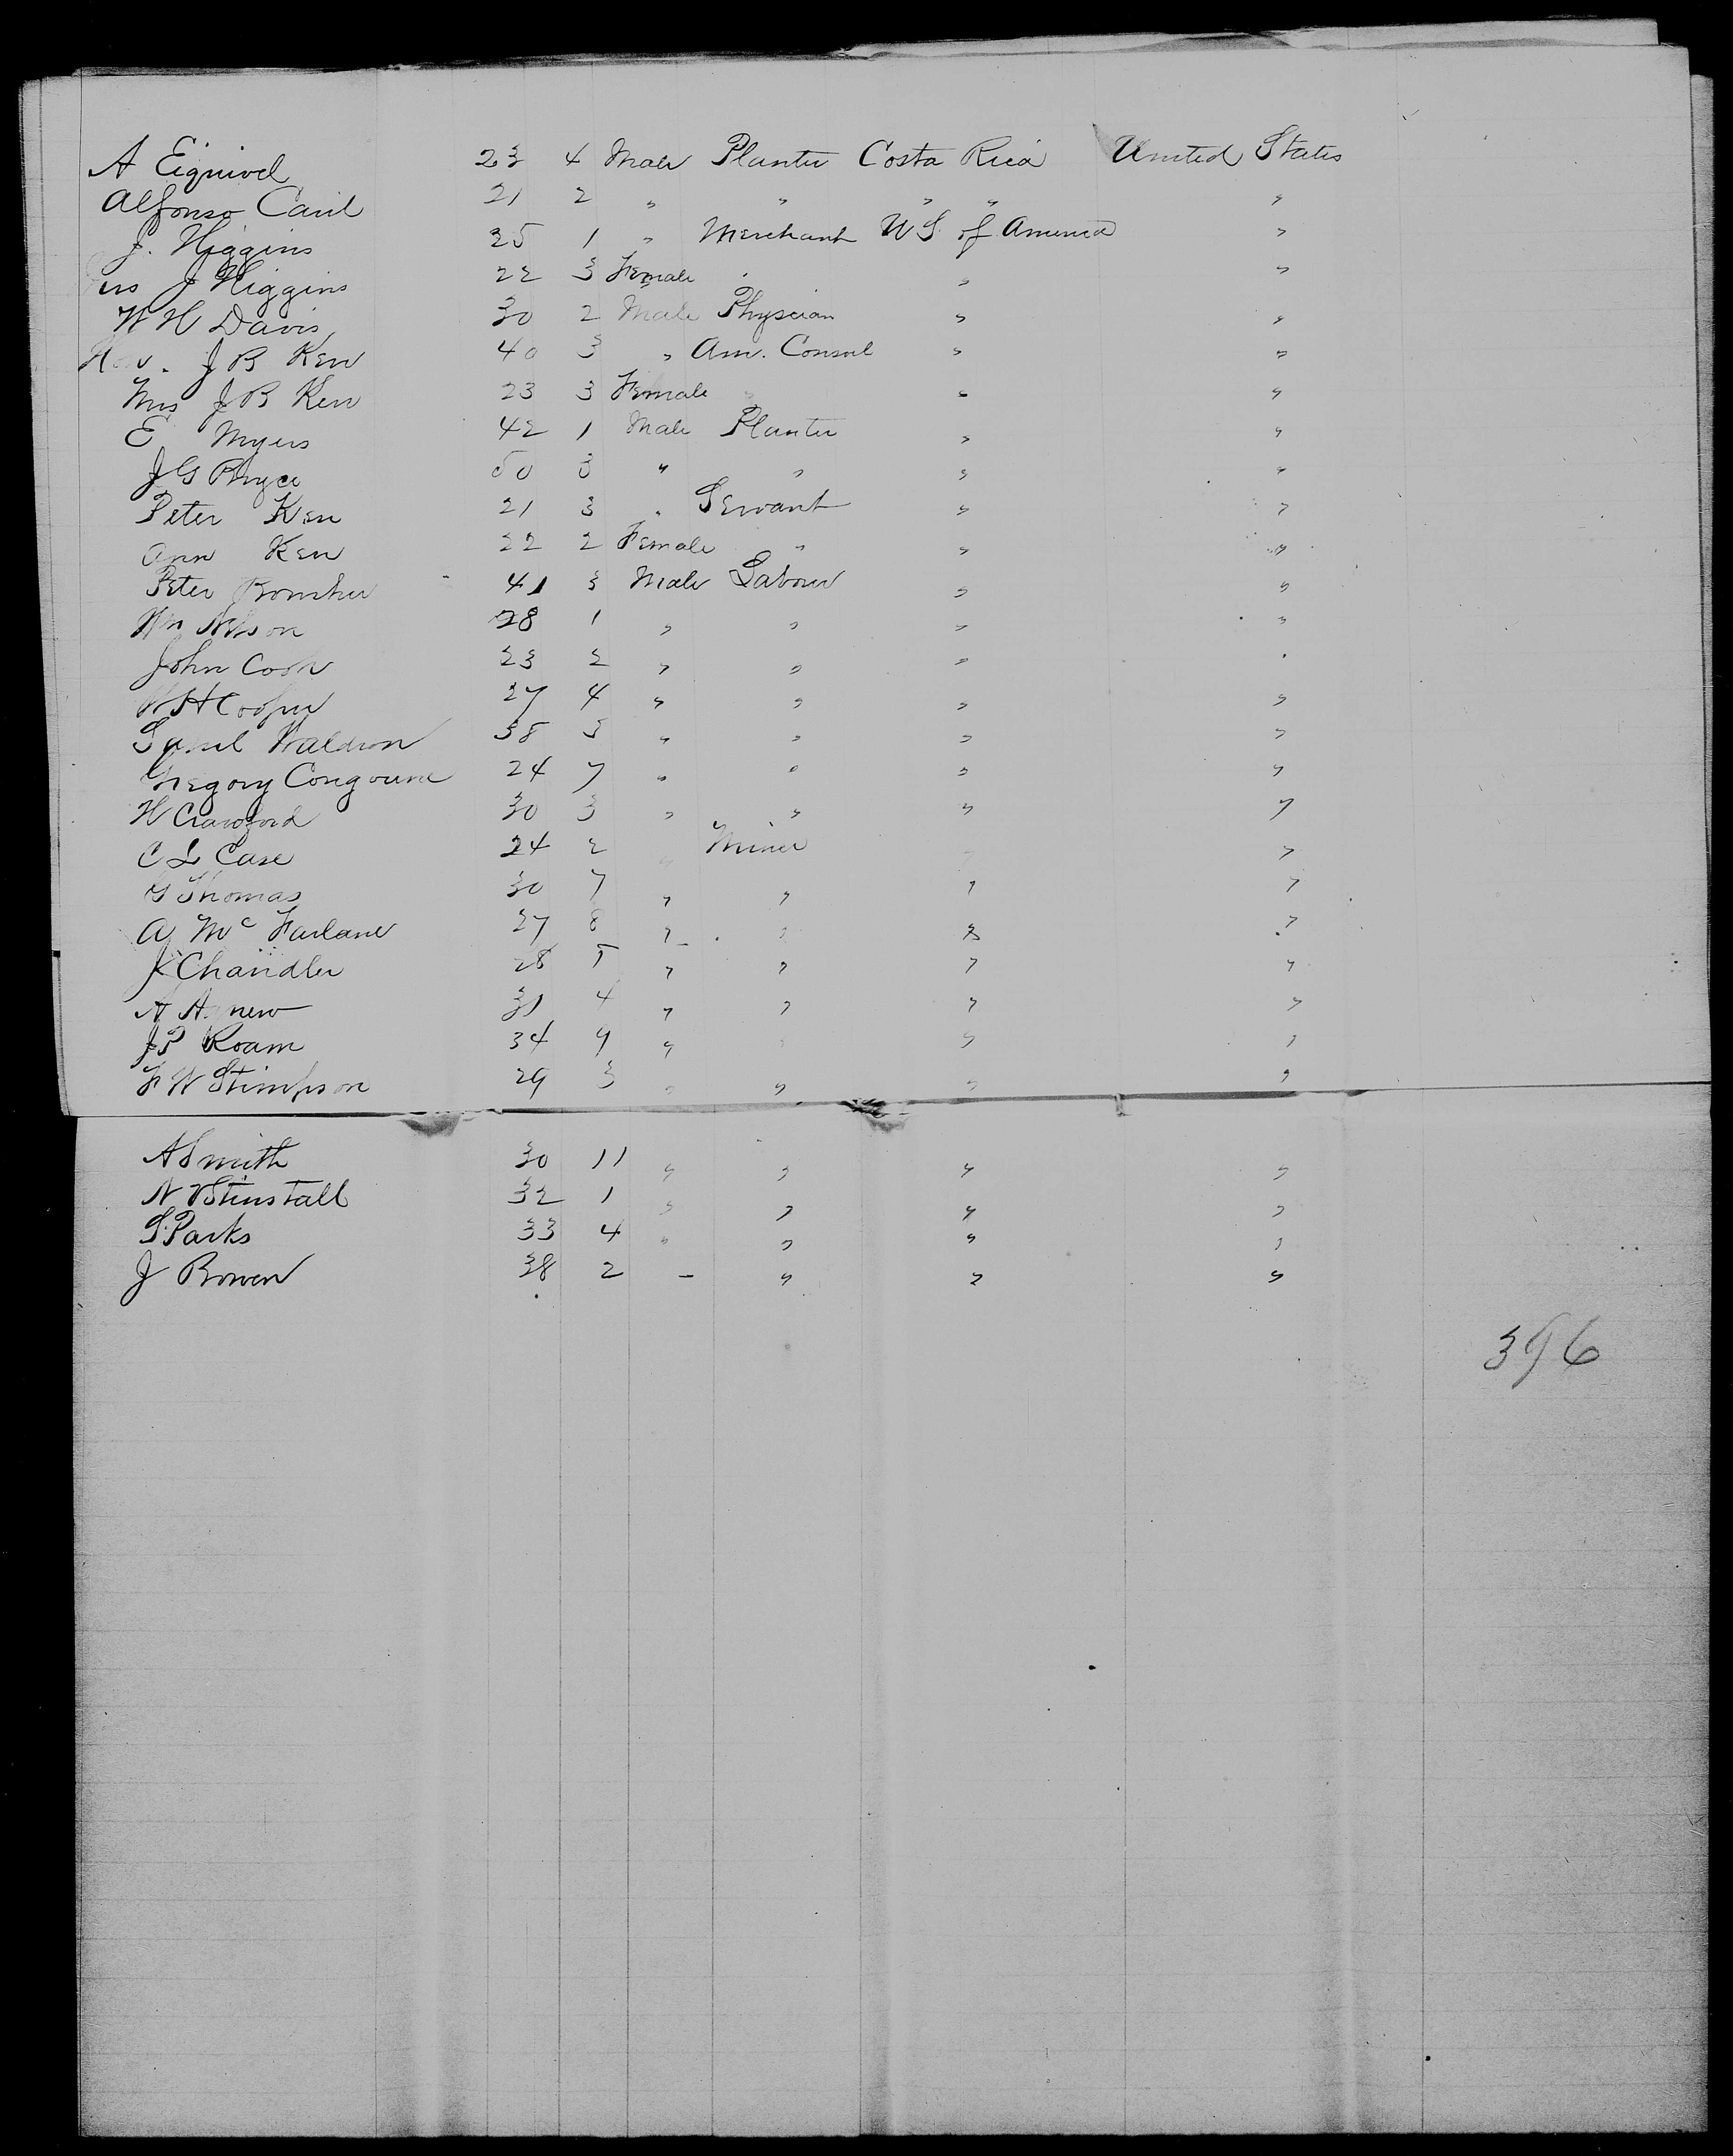 A Eiquivel 23 4 Male Planter Costa Rica United States
Alfonso Caril 21 2 " " " " "
J. Higgins 25 1 " Merchant U S. of America "
J Higgins 22 3 Female " " "
W H Davis 30 2 Male Physcian " "
J B Kerr 40 3 " Am. Consul " "
Mrs J B Kerr 23 3 Female " " "
E Myers 42 1 Male Planter " "
J G Bryce 50 3 " " " "
Peter Kerr 21 3 " Servant " "
Ann Kerr 22 2 Female " " "
Peter 41 3 Male Labour " "
Wm Nelson 28 1 " " " "
John Cook 23 2 " " " "
W H Cooper 27 4 " " " "
Saml Waldron 38 3 " " " "
Gregory 24 7 " " " "
H Crawford 30 3 " " " "
C L Case 24 2 " Miner " "
G Thomas 30 7 " " " "
A Mc Farlane 27 8 " " " "
J Chandler 28 5 " " " "
A Agnew 31 4 " " " "
J P Roam 34 9 " " " "
F W Stimpson 29 3 " " " "
A Smith 30 11 " " " "
N Stinstall 32 1 " " " "
S Parks 33 4 " " " "
J Bowen 38 2 - " " "
396